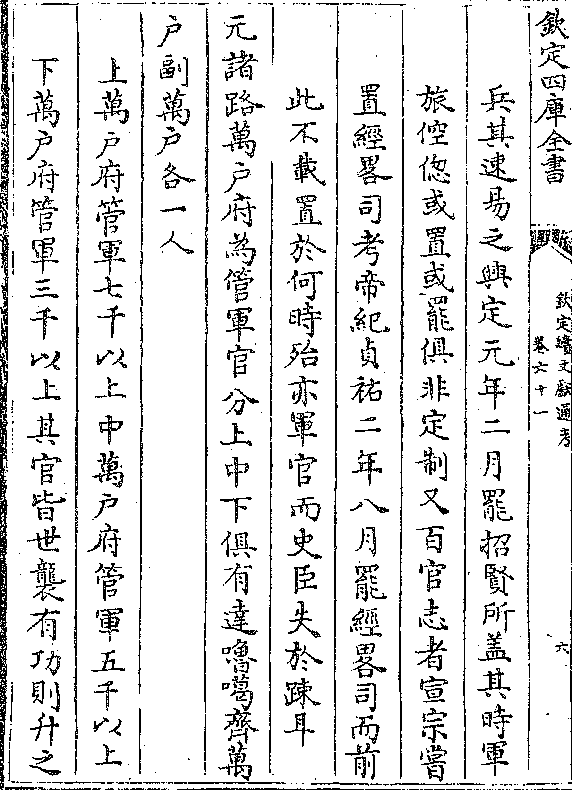 欽定四庫全書
欽定續文獻通考
卷六十一
六
兵其速易之興定元年二月罷招賢所蓋其時軍
旅倥偬或置或罷俱非定制又百官志者宣宗嘗
置經畧司考帝紀貞祐二年八月罷經畧司而前
此不載置於何時殆亦軍官而史臣失於疎耳
元諸路萬户府為管軍官分上中下俱有達嚕噶齊萬
户副萬户各一人
上萬户府管軍七千以上中萬户府管軍五千以上
下萬户府管軍三千以上其官皆世襲有功則升之